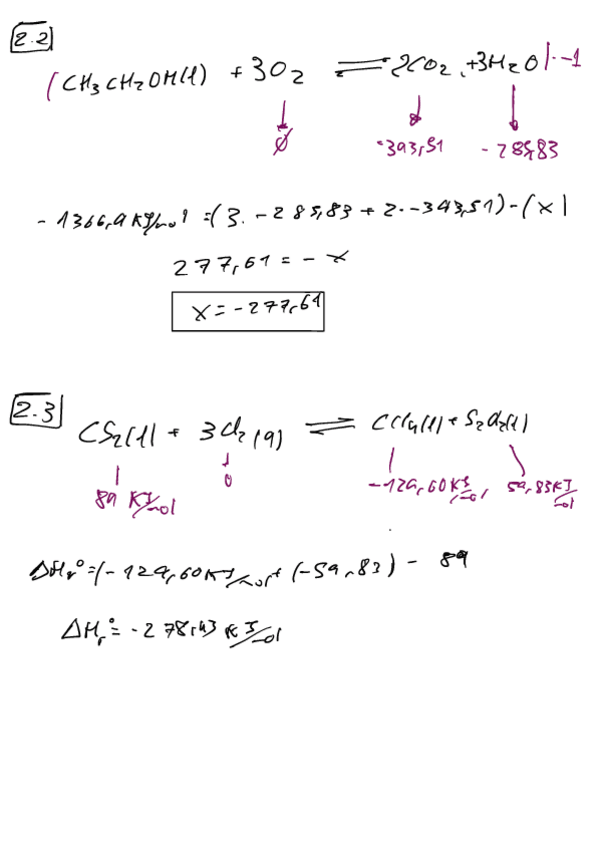 2.2
(CH₃CH₂OH(l) + 3O₂ ⇌ 2CO₂ + 3H₂O) · -1
↓ ↓ ↓
∅ -393,51 -285,83
-1366,9 KJ/mol = (3·-285,83 + 2·-393,51) - (x)
277,61 = -x
x = -277,61
2.3
CS₂(l) + 3Cl₂(g) ⇌ CCl₄(l) + S₂Cl₂(l)
89 KJ/mol 0 -129,60 KJ/mol 59,83 KJ/mol
ΔHr° = (-129,60 KJ/mol + (-59,83) - 89
ΔHr° = -278,43 KJ/mol